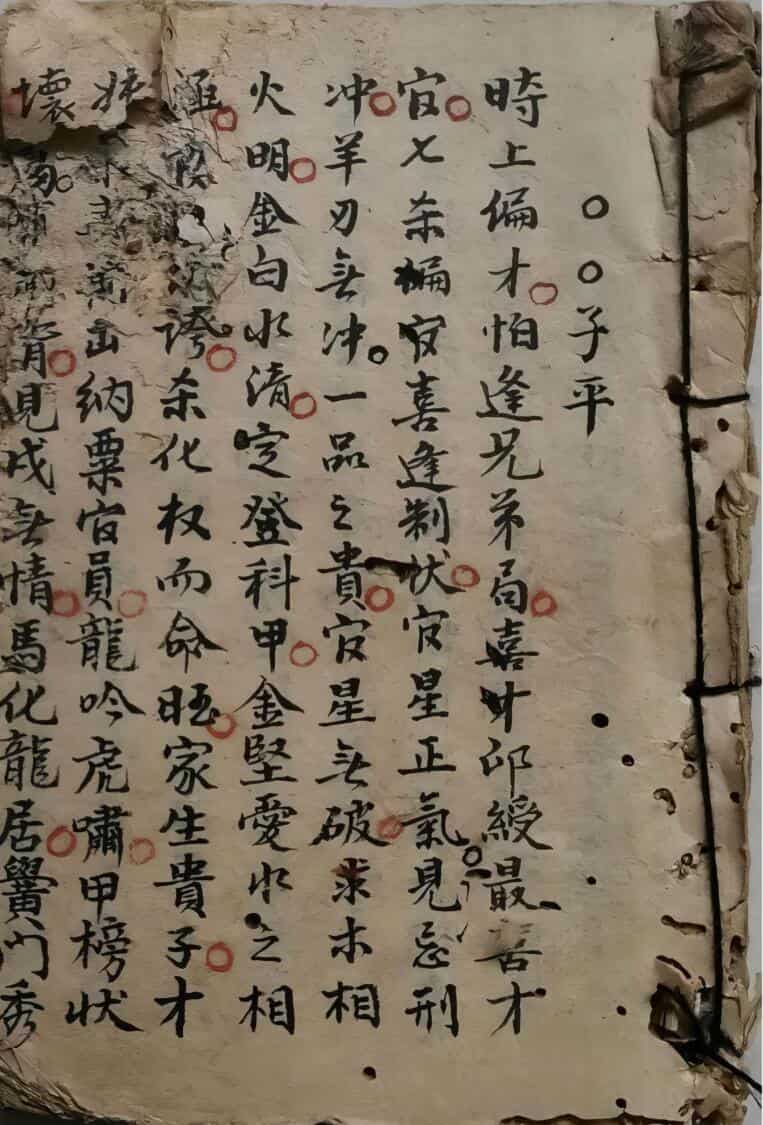 ○○子平
時上偏才怕逢兄弟局喜才印綬最苦才
官七杀偏官喜逢制伏官星正氣見忌刑
冲羊刃無冲一品之貴官星無破求木相
火明金白水清定登科甲金堅愛水之相
涵誇杀化权而命旺家生貴子才
出納粟官員龍吟虎嘯甲榜状
壞見戌無情馬化龍居黌门秀